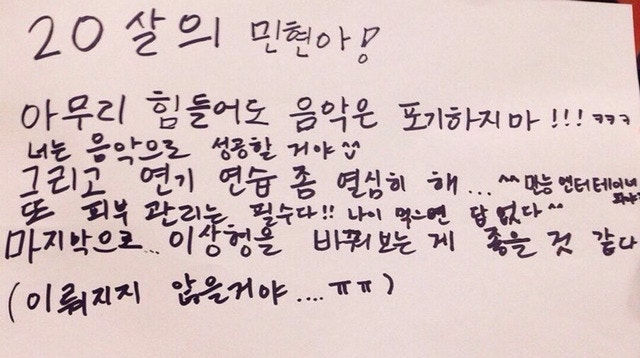 20살의 민현아!
아무리 힘들어도 음악은 포기하지마!!! ㅋㅋㅋ
너는 음악으로 성공할 거야^^
그리고 연기 연습 좀 열심히 해... ^^ 만능엔터테이너
또 피부 관리는 필수다!! 나이 먹으면 답 없다^^
마지막으로... 이상형을 바꿔보는 게 좋을 것 같다
(이뤄지지 않을거야.... ㅠㅠ)